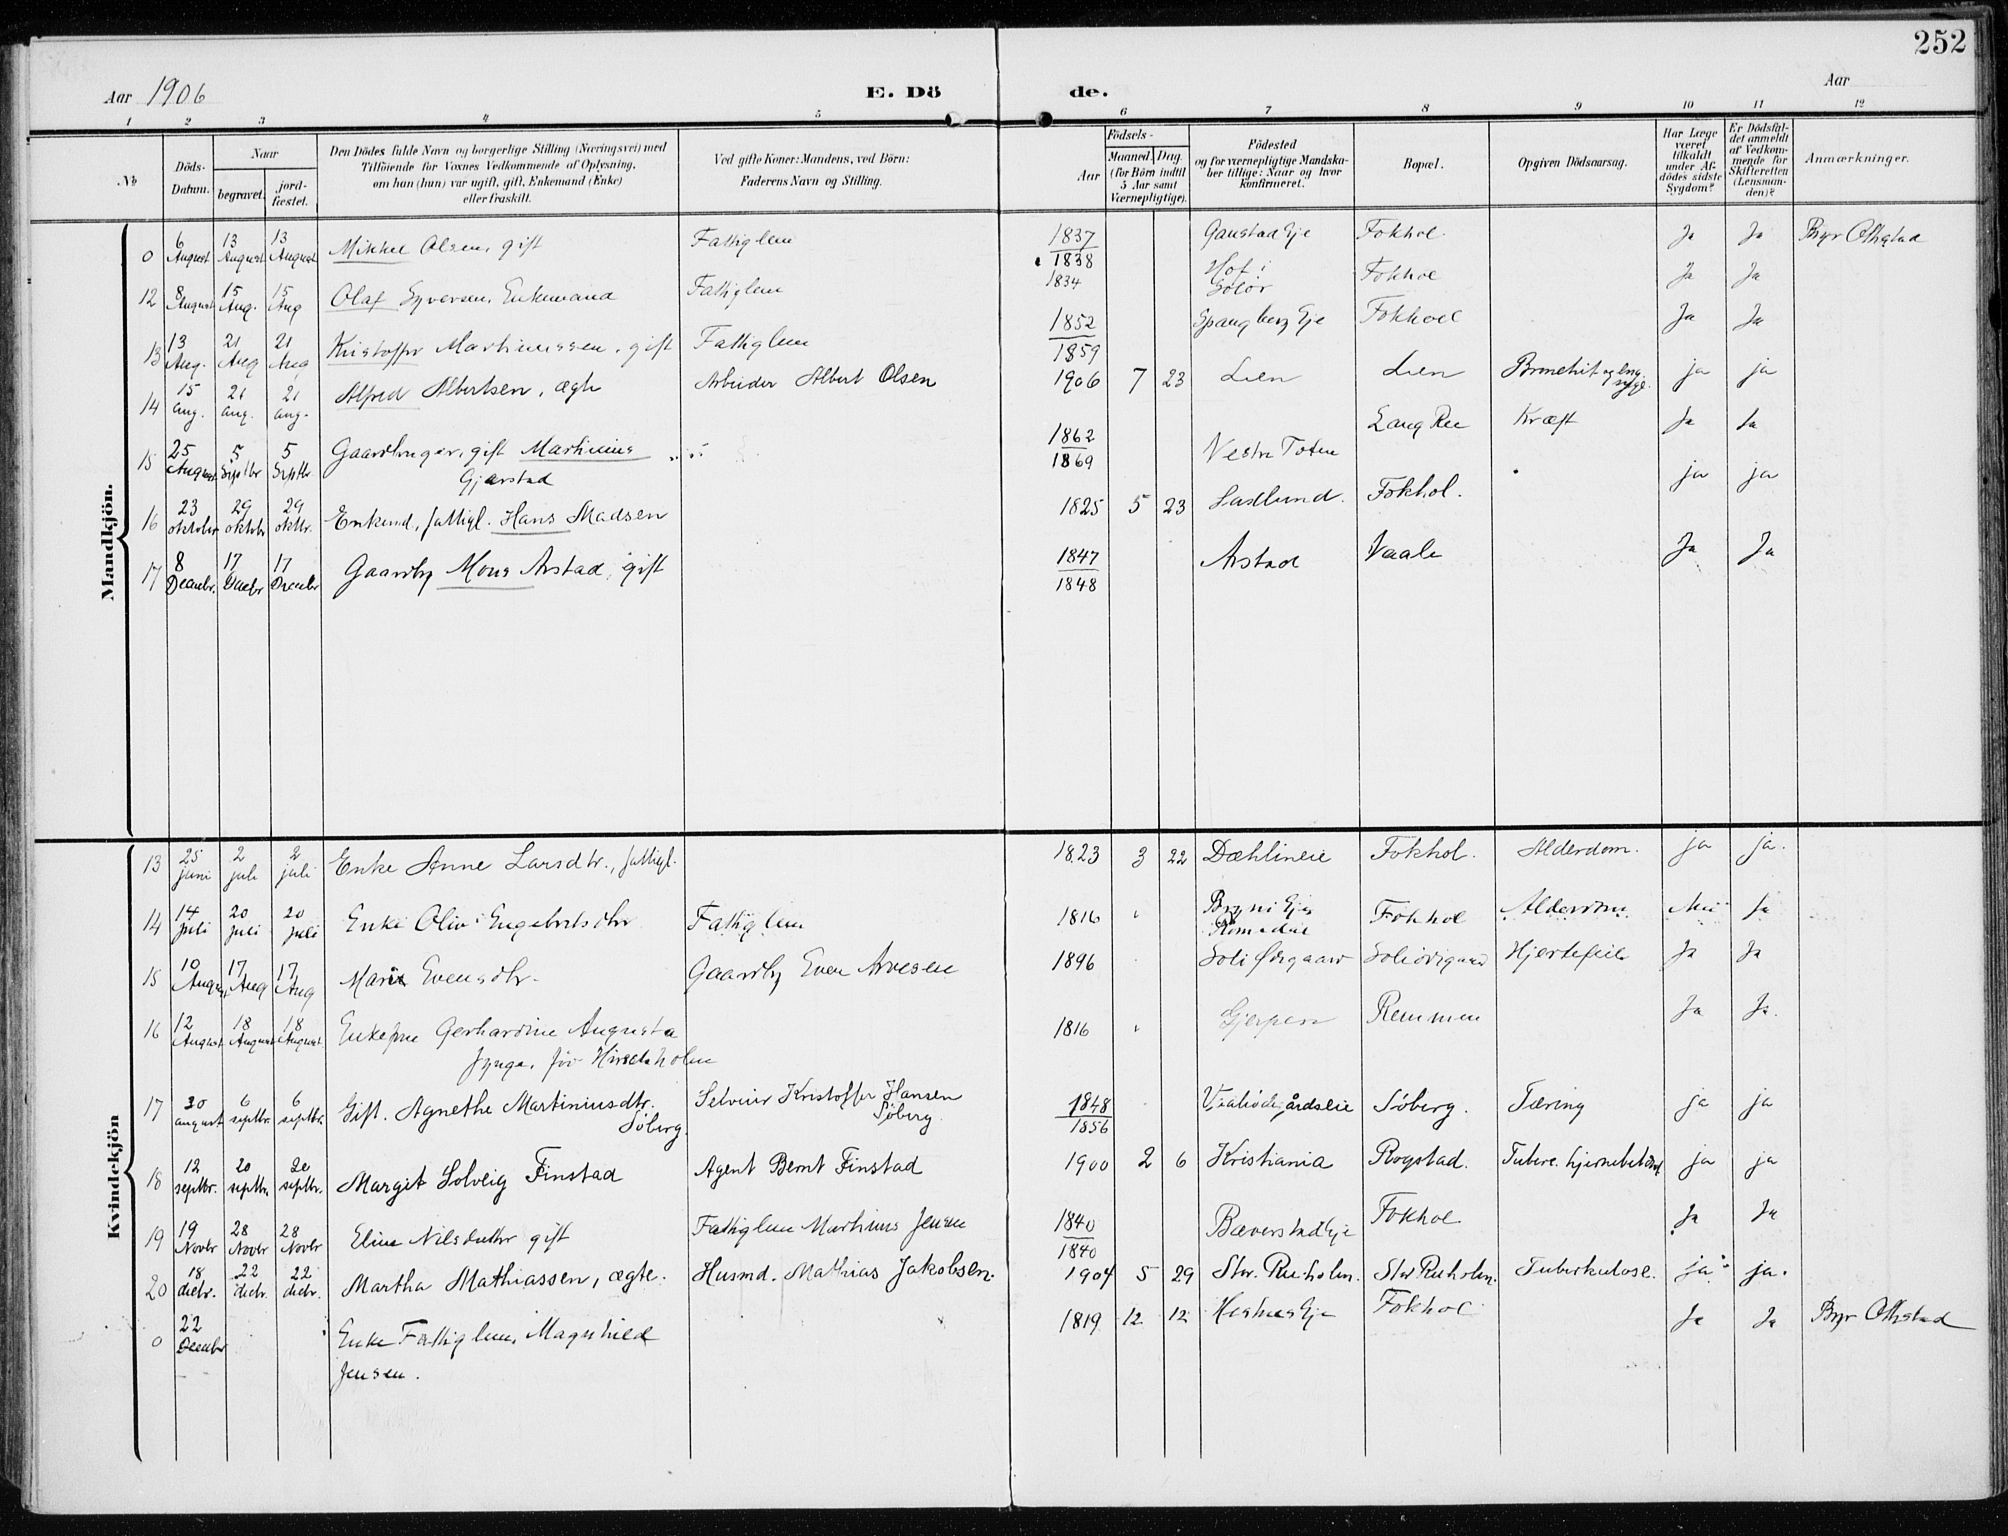 252
Aar 1906
E. Dö de.
Aar
1 2 3 4 5 6 7 8 9 10 11 12
No
Döds-Datum.
Naar
begravet.
jord-fæstet.
Den Dödes fulde Navn og borgerlige Stilling (Næringsvei) med
Tilföiende for Voxnes Vedkommende af Oplysning,
om han (hun) var ugift, gift, Enkemand (Enke)
eller fraskilt.
Ved gifte Koner: Mandens, ved Börn:
Faderens Navn og Stilling.
Födsels-
Aar
Maaned. Dag.
(for Börn indtil
5 Aar samt
Værnepligtige).
Födested
og for værnepligtige Mandska-
ber tillige: Naar og hvor
konfirmeret.
Bopæl.
Opgiven Dödsaarsag.
Har Læge
været
tilkaldt
under Af-
dödes sidste
Sygdom?
Er Dödsfal-
det anmeldt
af Vedkom-
mende for
Skifteretten
(Lensman-
den)?
Anmærkninger.
Mandkjön.
0 6 August 13 August 13 August Mikkel Olsen, gift Fattiglem 1837 1838 Gaustad Eje Fokhol Ja Ja Byr Othstad
12 8 August 15 Aug. 15 Aug Olaf Syversen, Enkemand Fattiglem 1834 Hof i Solör Fokhol Ja Ja
13 13 Aug. 21 Aug 21 Aug Kristoffer Martinussen, gift Fattiglem 1852 1859 Spangberg Eje Fokhol Ja Ja
14 15 Aug. 21 Aug. 21 Aug. Alfred Albertsen, ægte Arbeider Albert Olsen 1906 7 23 Lien Lien Bronchit og eng. syge. ja ja
15 25 August 5 Septbr 5 Septbr Gaardbruger, gift Martinius Gjærstad 1862 1869 Vestre Toten Lang Ree Kræft Ja Ja
16 23 oktober 29 oktobr 29 oktbr. Enkemd, fattigl. Hans Madsen 1825 5 23 Saxlund. Fokhol. ja ja
17 8 Decembr. 17 Decbr 17 Decembr Gaardbr Mons Arstad, gift 1847 1848 Arstad Vaale Ja Ja
Kvindekjön
13 25 juni 2 juli 2 juli Enke Anne Larsdtr., fattigl. 1823 3 22 Dæhlineie Fokhol. Alderdom. ja ja.
14 14 juli 20 juli 20 juli Enke Olive Engebretsdtr Fattiglem 1816 Bryni Eje Romedal Fokhol Alderdom. Nei Ja
15 10 August 17 Aug 17 Aug Marie Evensdtr. Gaardbr Even Arnesen 1896 Soli Ødegaard Soliødegaard Hjertefeil Ja Ja
16 12 August 18 August 18 August Enkefrue Gerhardine Augusta Jynge, föd Hirschholm 1816 Gjerpen Remmen Ja Ja.
17 30 august 6 septbr. 6 septbr. Gift. Agnethe Martiniusdtr. Söberg. Selveier Kristoffer Hansen Söberg. 1848 1856 Söberg. Tæring ja ja
18 12 septbr. 20 septbr. 20 septbr. Margit Solveig Finstad Agent Bernt Finstad 1900 2 6 Kristiania Rogstad. Tuberc. hjernebetænd. ja ja
19 19 Novbr 28 Novbr 28 Novbr Eline Nilsdatter gift Fattiglem Martinus Jensen 1840 1840 Bæverstad Eje Fokhol Ja Ja
20 18 decbr. 22 decbr. 22 decbr. Martha Mathiassen, ægte. Husmd. Mathias Jakobsen. 1904 5 29 Stor. Ruholm. Stor Ruholm. Tuberkulose. ja ja.
0 22 December Enke Fattiglem, Magnhild Jensen. 1819 12 12 Hesnes Eje Fokhol Ja Ja Byr Othstad